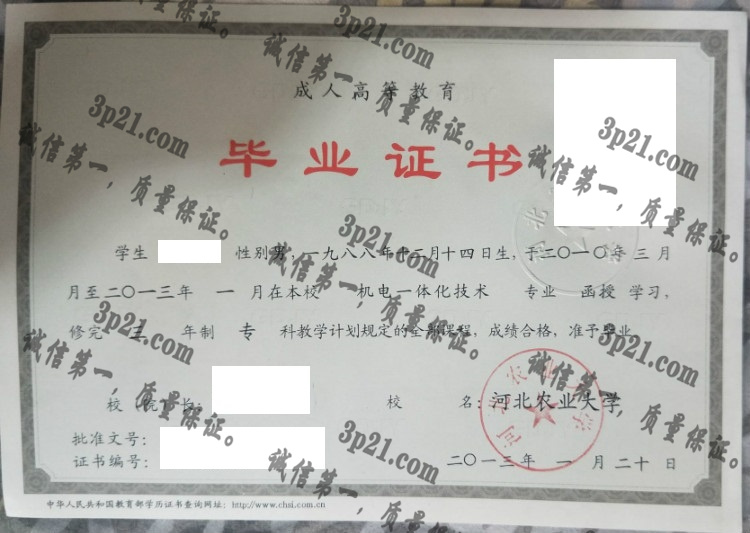 成人高等教育
毕业证书
学生 性别男，一九八八年十二月十四日生，于二〇一〇年 三 月
月至二〇一三年 一 月在本校 机电一体化技术 专业 函授 学习，
修完 三 年制 专 科教学计划规定的全部课程，成绩合格，准予毕业。
校（院）长： 校 名：河北农业大学
批准文号：
证书编号： 二〇一三年 一 月 二十 日
中华人民共和国教育部学历证书查询网址：http://www.chsi.com.cn
河北农业大学
3p21.com
诚信第一，质量保证。
3p21.com
诚信第一，质量保证。
3p21.com
诚信第一，质量保证。
3p21.com
诚信第一，质量保证。
3p21.com
诚信第一，质量保证。
3p21.com
诚信第一，质量保证。
3p21.com
诚信第一，质量保证。
3p21.com
诚信第一，质量保证。